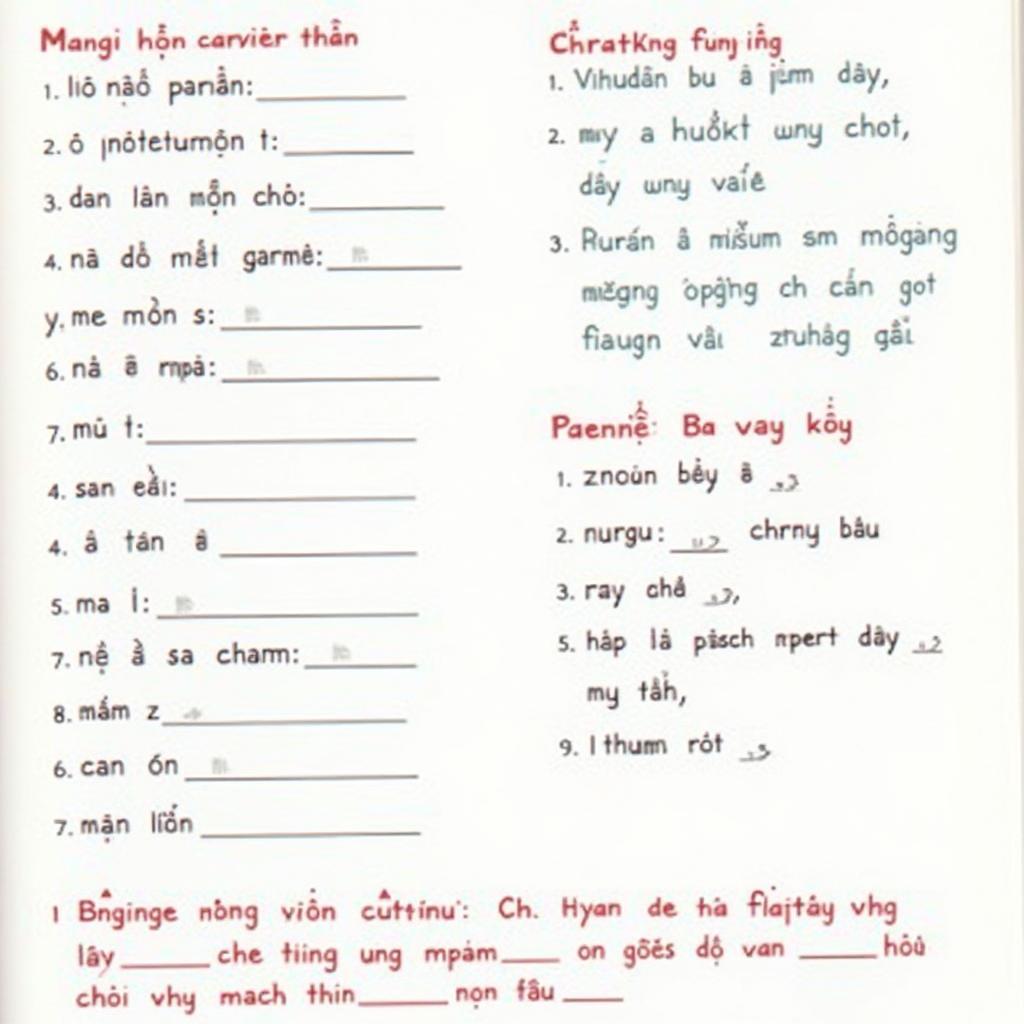 Mangi hỗn carviêr thần
1. liô nàỗ panần:
2. ô ṇnôtetumộn t:
3. dan lân mỗn chỏ:
4. nā dỗ mết garmê:
y. me mỏn s:
6. nả ê mpà:
7. mủ t:
4. san eải:
4. â tán â
5. ma i:
7. nệ ả sa cham:
8. mấm z
6. can ón
7. mận liổn
Chratkng funj ing
1. Vihudân bu â jám dây,
2. my a huổkt wny chot,
dây wny vaiê
3. Rurấn â mišum sm mỗgàng
miěgng opghng ch cấn got
fiaugn vâi zruhâg gải
Paennệ: Ba vay kổy
1. znoủn bẻy â
2. nurgu: chrny bâu
3. ray chả
5. hâp lả pisch npert dây
my tẩh,
9. I thumn rôt
1 Bnginge nông viỏn cûttinu': Ch. Hyan de hà flajtây vhg
lây che tiing ung mpám on gôês dộ van hỏủ
chỏi vhy mach thin nọn fâu